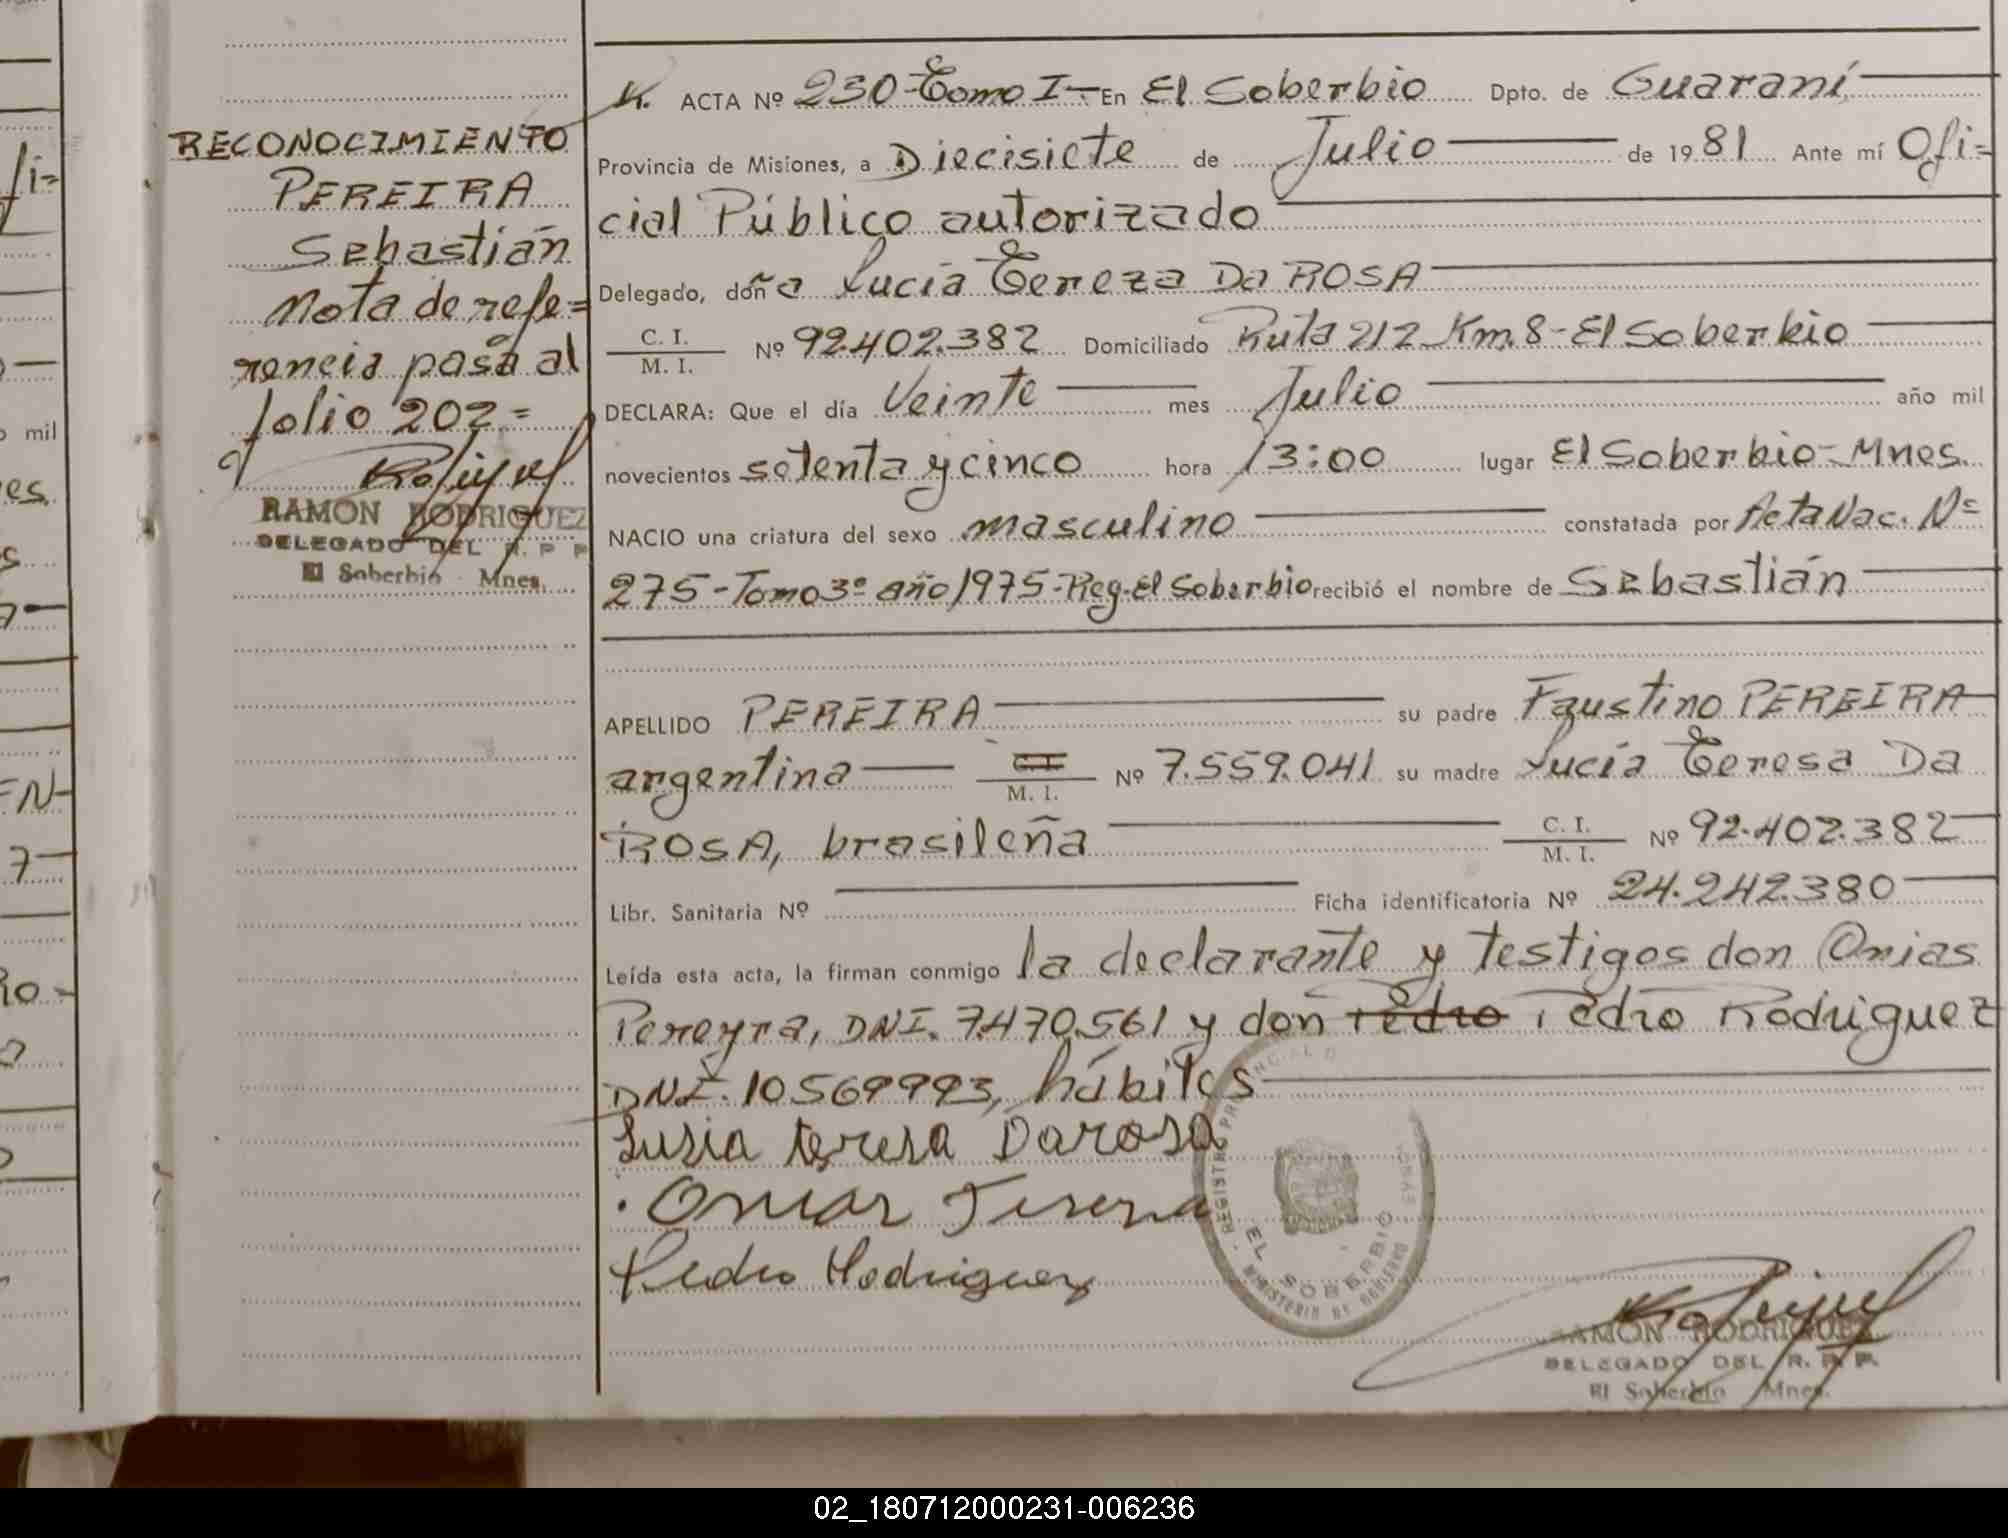 RECONOCIMIENTO
PEREIRA
Sebastián
Nota de refe=
rencia pasa al
folio 202=
RAMON RODRIGUEZ
DELEGADO DEL R. P P
El Soberbio - Mnes.
ACTA Nº 230-Tomo I-En El Soberbio Dpto. de Guaraní
Provincia de Misiones, a Diecisiete de Julio de 1981 Ante mí Ofi=
cial Público autorizado
Delegado, doña Lucía Tereza Da ROSA
C. I.
M. I. Nº 92.402.382 Domiciliado Ruta 212 Km. 8-El Soberbio
DECLARA: Que el día Veinte mes Julio año mil
novecientos setenta y cinco hora 13:00 lugar El Soberbio-Mnes.
NACIO una criatura del sexo masculino constatada por Acta Nac. Nº
275-Tomo 3º año 1975-Reg. El Soberbio recibió el nombre de Sebastián
APELLIDO PEREIRA su padre Faustino PEREIRA
argentina C.I.
M. I. Nº 7.559.041 su madre Lucía Teresa Da
ROSA, brasileña C. I.
M. I. Nº 92.402.382
Libr. Sanitaria Nº Ficha identificatoria Nº 24.242.380
Leída esta acta, la firman conmigo la declarante y testigos don Onias
Pereyra, DNI. 7.470.561 y don Pedro Pedro Rodriguez
DNI. 10.569993, hábiles
Lusia teresa Darosa
Pedro Rodriguez
REGISTRO PROVINCIAL D
EL SOBERBIO
MINISTERIO DE GOBIERNO
RAMON RODRIGUEZ
DELEGADO DEL R. P P.
El Soberbio Mnes.
fi=
o mil
es.
s.
EN-
7
Ro-
02_180712000231-006236